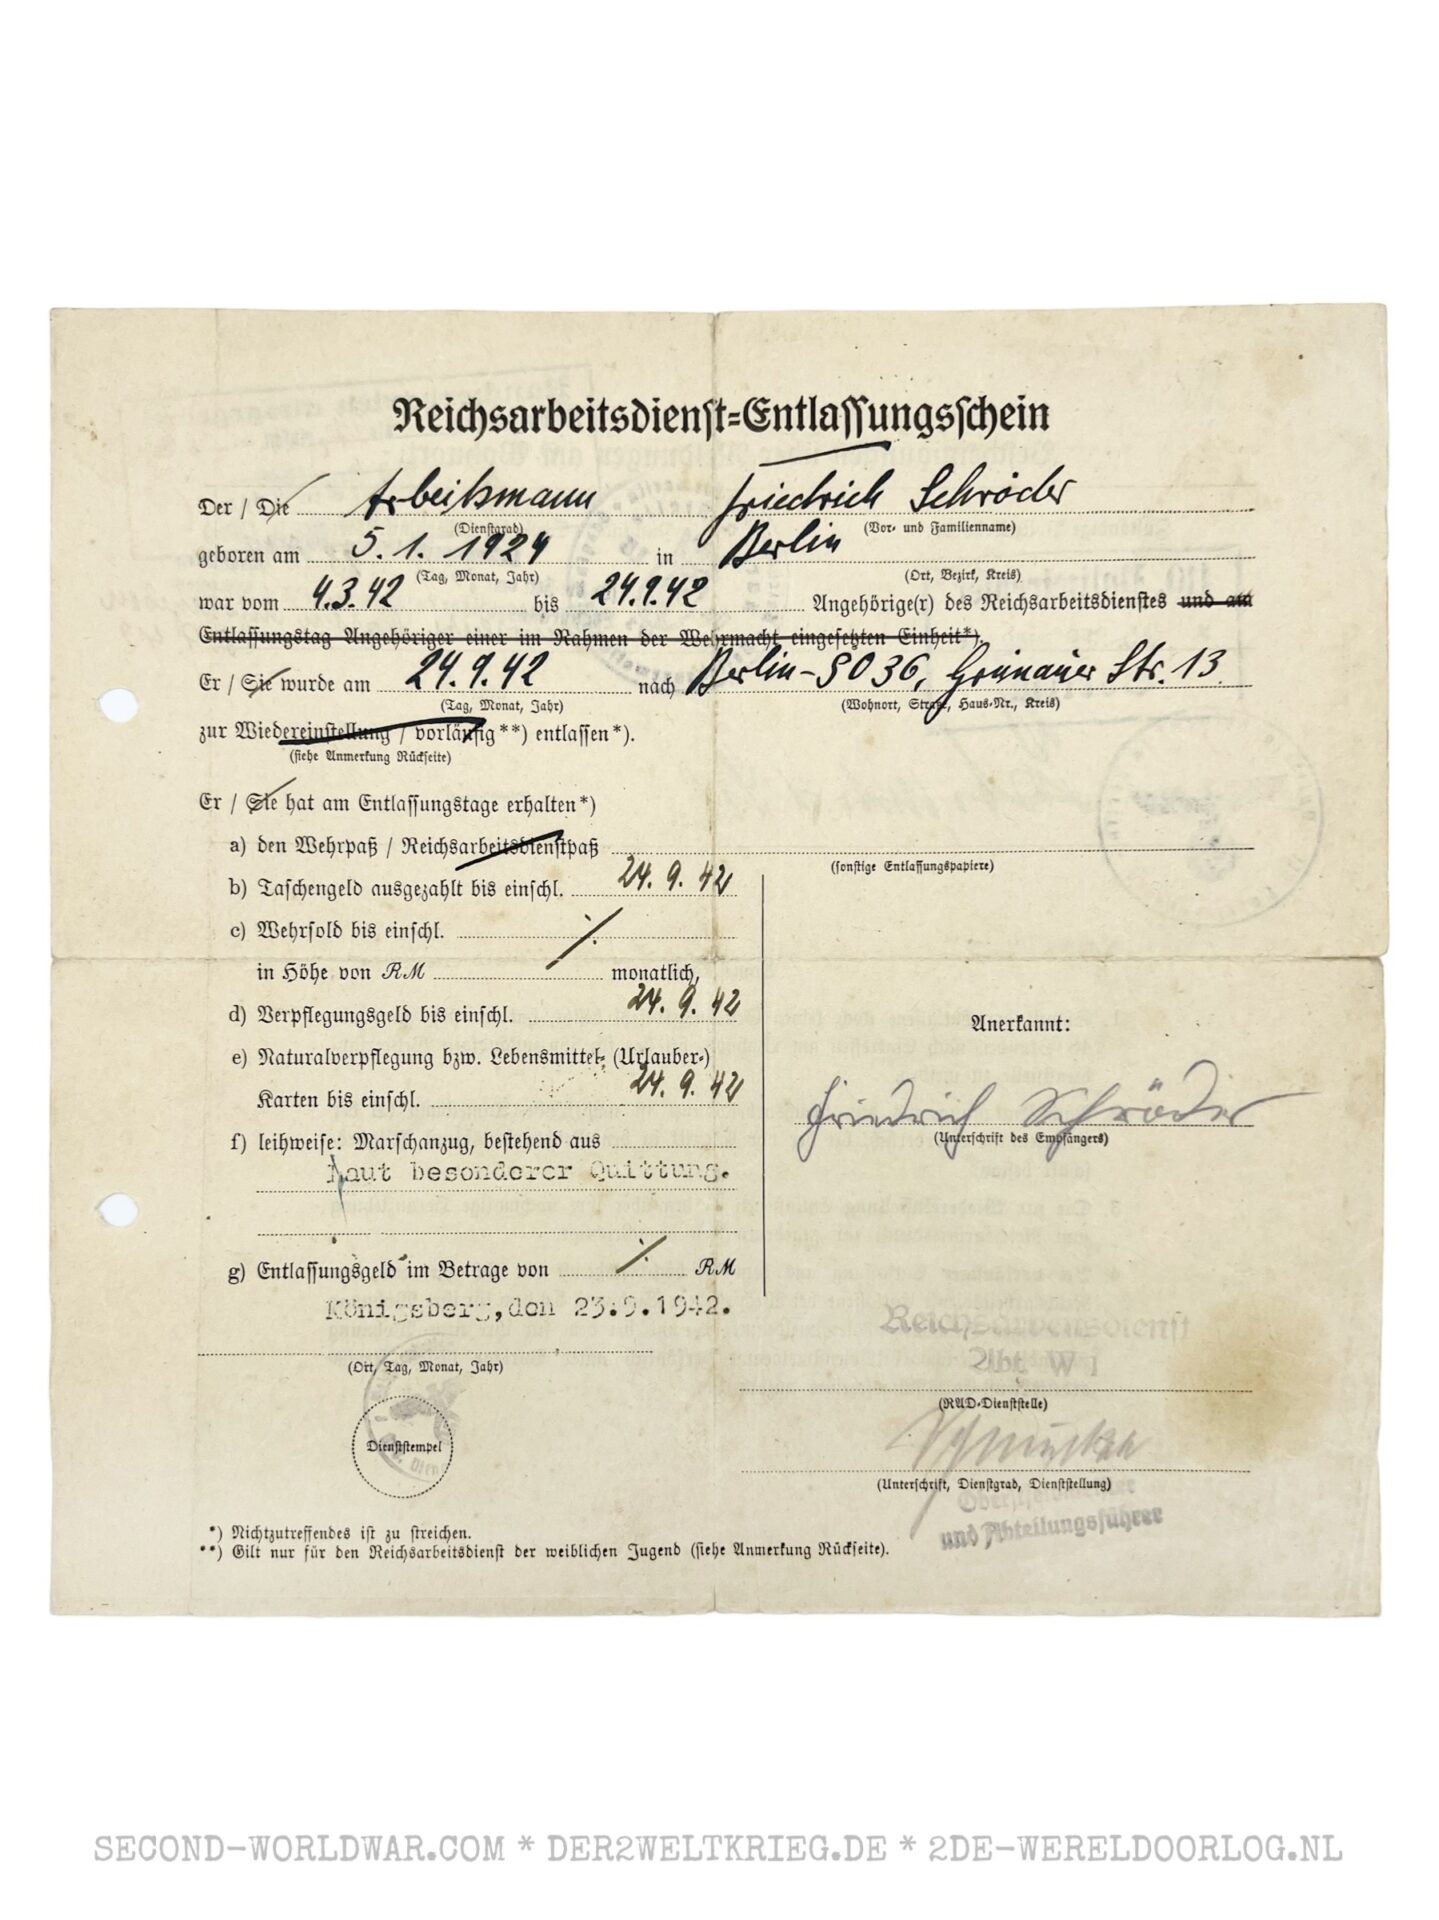 Reichsarbeitsdienst-Entlassungsschein
Der / Die Arbeitsmann Friedrich Schröder
(Dienstgrad) (Vor- und Familienname)
geboren am 5. 1. 1924 in Berlin
(Tag, Monat, Jahr) (Ort, Bezirk, Kreis)
war vom 4.3.42 bis 24.9.42 Angehörige(r) des Reichsarbeitsdienstes und am
Entlassungstag Angehöriger einer im Rahmen der Wehrmacht eingesetzten Einheit*).
Er / Sie wurde am 24.9.42 nach Berlin-SO 36, Grünauer Str. 13
(Tag, Monat, Jahr) (Wohnort, Straße, Haus-Nr., Kreis)
zur Wiedereinstellung / vorläufig**) entlassen*).
(siehe Anmerkung Rückseite)
Er / Sie hat am Entlassungstage erhalten*)
a) den Wehrpaß / Reichsarbeitsdienstpaß
(sonstige Entlassungspapiere)
b) Taschengeld ausgezahlt bis einschl. 24. 9. 42
c) Wehrsold bis einschl. ./.
in Höhe von RM monatlich,
d) Verpflegungsgeld bis einschl. 24. 9. 42
e) Naturalverpflegung bzw. Lebensmittel- (Urlauber-)
Karten bis einschl. 24. 9. 42
f) leihweise: Marschanzug, bestehend aus
Laut besonderer Quittung.
g) Entlassungsgeld im Betrage von ./. RM
Königsberg, den 23.9.1942.
(Ort, Tag, Monat, Jahr)
Dienststempel
Anerkannt:
Friedrich Schröder
(Unterschrift des Empfängers)
Reichsarbeitsdienst
Abt. W 1
(RAD-Dienststelle)
(Unterschrift, Dienstgrad, Dienststellung)
und Abteilungsführer
*) Nichtzutreffendes ist zu streichen.
**) Gilt nur für den Reichsarbeitsdienst der weiblichen Jugend (siehe Anmerkung Rückseite).
SECOND-WORLDWAR.COM * DER2WELTKRIEG.DE * 2DE-WERELDOORLOG.NL